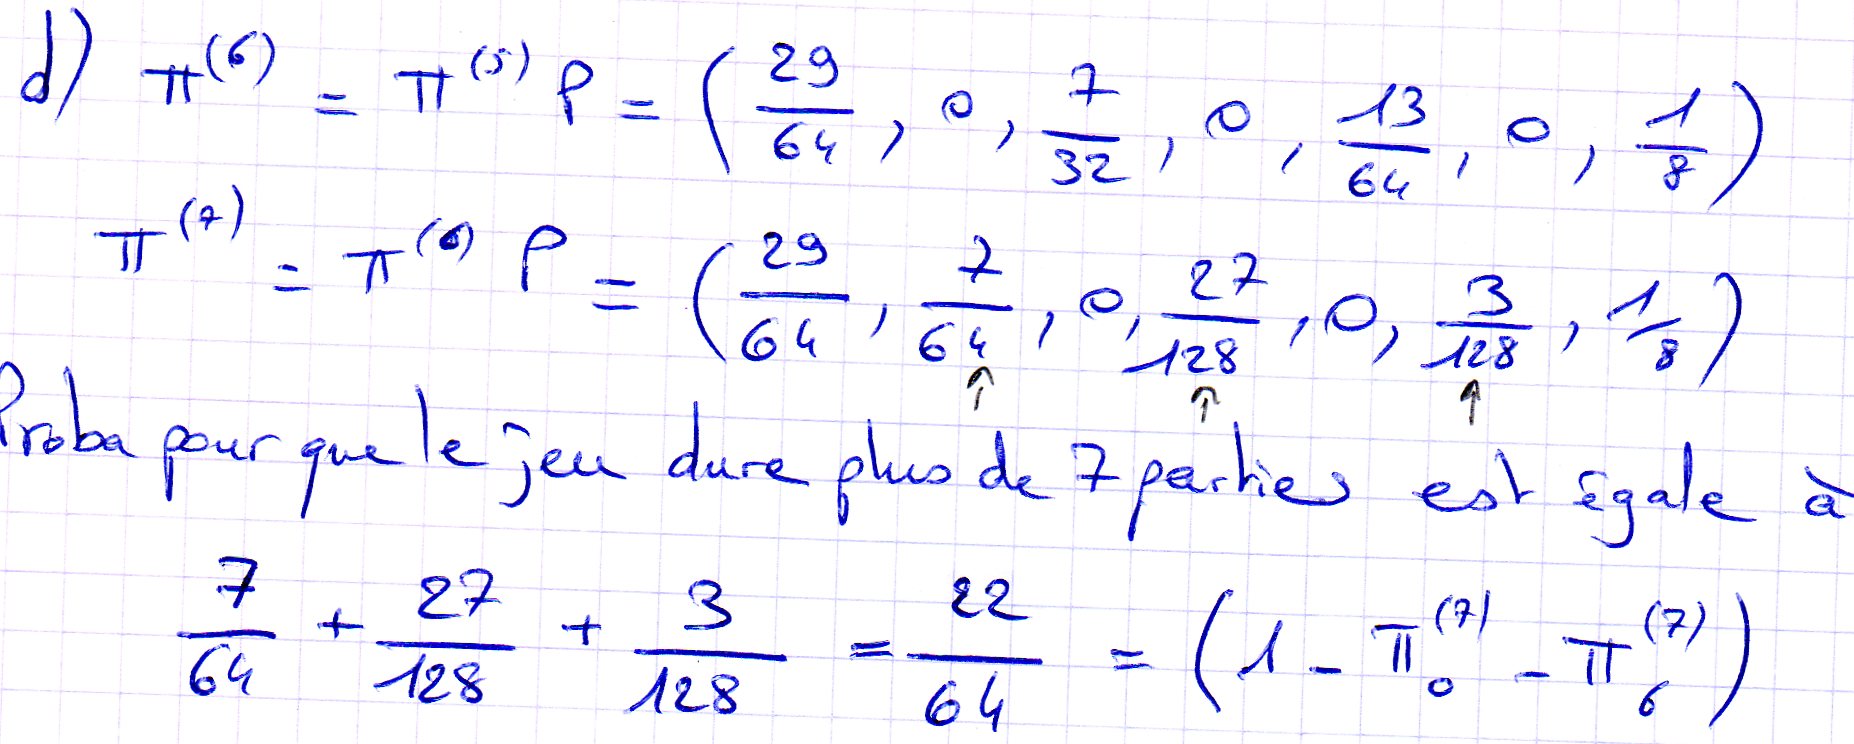 d) π^(6) = π^(5) P = (29/64, 0, 7/32, 0, 13/64, 0, 1/8)
π^(7) = π^(6) P = (29/64, 7/64, 0, 27/128, 0, 3/128, 1/8)
↑ ↑ ↑
Proba pour que le jeu dure plus de 7 parties est égale à
7/64 + 27/128 + 3/128 = 22/64 = (1 - π_0^(7) - π_6^(7))